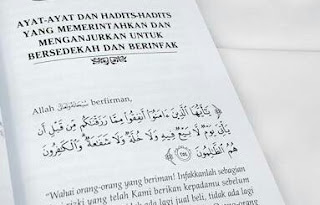 AYAT-AYAT DAN HADITS-HADITS
YANG MEMERINTAHKAN DAN
MENGANJURKAN UNTUK
BERSEDEKAH DAN BERINFAK
Allah berfirman,
يَٰٓأَيُّهَا ٱلَّذِينَ ءَامَنُوٓا۟ أَنفِقُوا۟ مِمَّا رَزَقْنَٰكُم مِّن قَبْلِ أَن
يَأْتِىَ يَوْمٌ لَّا بَيْعٌ فِيهِ وَلَا خُلَّةٌ وَلَا شَفَٰعَةٌ وَٱلْكَٰفِرُونَ
هُمُ ٱلظَّٰلِمُونَ
"Wahai orang-orang yang beriman! Infakkanlah sebagian
rizki yang telah Kami berikan kepadamu sebelum
lagi jual beli, tidak ada lagi